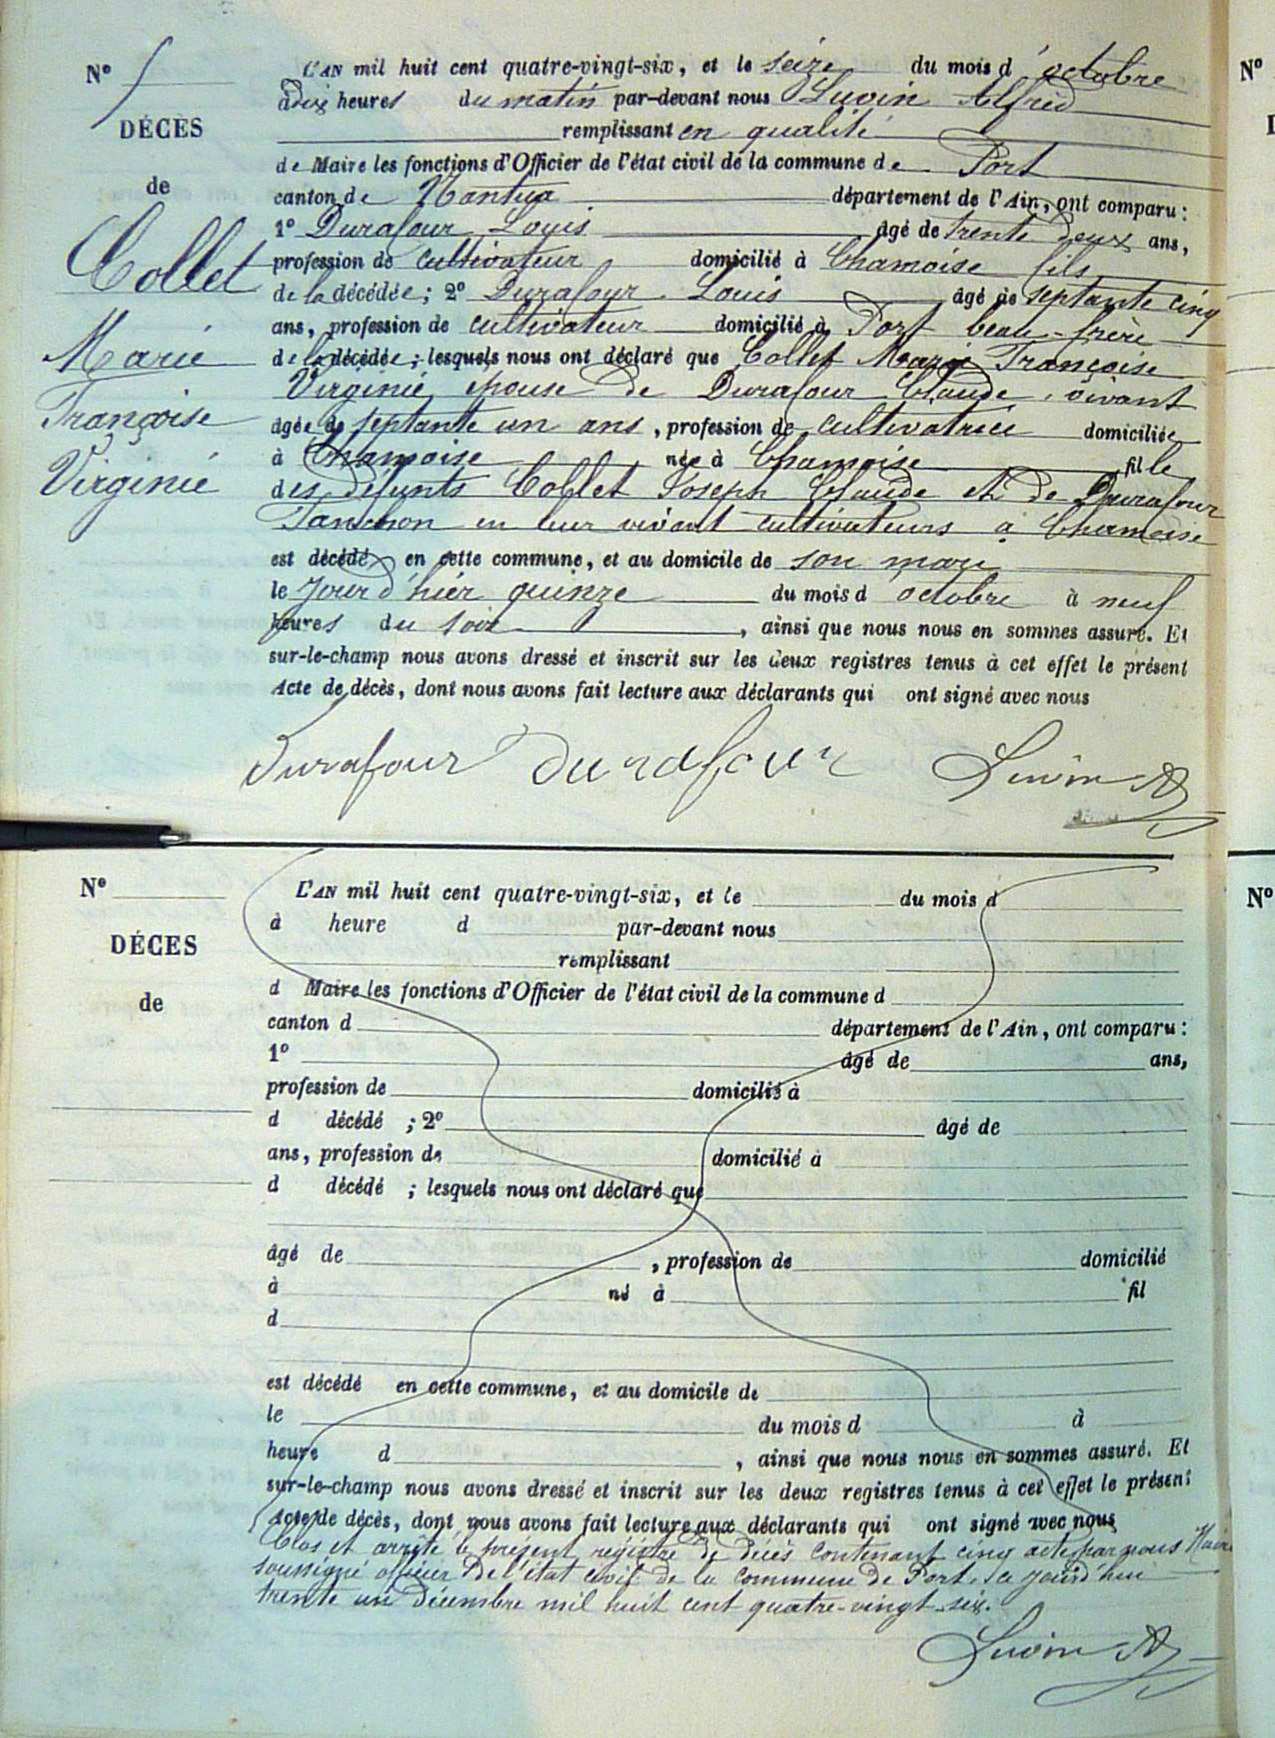 N° 5
DÉCÈS
de
Collet
Marie
Françoise
Virginie
L'AN mil huit cent quatre-vingt-six, et le seize du mois d'octobre
à dix heures du matin par-devant nous Luvin Alfred
remplissant en qualité
de Maire les fonctions d'Officier de l'état civil de la commune de Port
canton de Nantua département de l'Ain, ont comparu :
1° Durafour Louis âgé de trente deux ans,
profession de cultivateur domicilié à Chamoise fils
de la décédée ; 2° Durafour Louis âgé de septante cinq
ans, profession de cultivateur domicilié à Port beau-frère
de la décédée ; lesquels nous ont déclaré que Collet Marie Françoise
Virginie épouse de Durafour Claude, vivant
âgée de septante un ans, profession de cultivatrice domiciliée
à Chamoise née à Chamoise fille
des défunts Collet Joseph Claude et de Durafour
Fanchon en leur vivant cultivateurs à Chamoise
est décédée en cette commune, et au domicile de son mari
le jour d'hier quinze du mois d octobre à neuf
heures du soir, ainsi que nous nous en sommes assuré. Et
sur-le-champ nous avons dressé et inscrit sur les deux registres tenus à cet effet le présent
Acte de décès, dont nous avons fait lecture aux déclarants qui ont signé avec nous
Durafour Durafour Luvin A
N°
DÉCES
de
L'AN mil huit cent quatre-vingt-six, et le du mois d
à heure d par-devant nous
remplissant
d Maire les fonctions d'Officier de l'état civil de la commune d
canton d département de l'Ain, ont comparu :
1° âgé de ans,
profession de domicilié à
d décédé ; 2° âgé de
ans, profession de domicilié à
d décédé ; lesquels nous ont déclaré que
âgé de , profession de domicilié
à né à fil
d
est décédé en cette commune, et au domicile de
le du mois d à
heure d , ainsi que nous nous en sommes assuré. Et
sur-le-champ nous avons dressé et inscrit sur les deux registres tenus à cet effet le présent
Acte de décès, dont nous avons fait lecture aux déclarants qui ont signé avec nous
Clos et arrêté le présent registre de décès contenant cinq actes par nous Maire
soussigné officier de l'état civil de la commune de Port, ce jourd'hui
trente un décembre mil huit cent quatre-vingt-six.
Luvin A
N°
N°